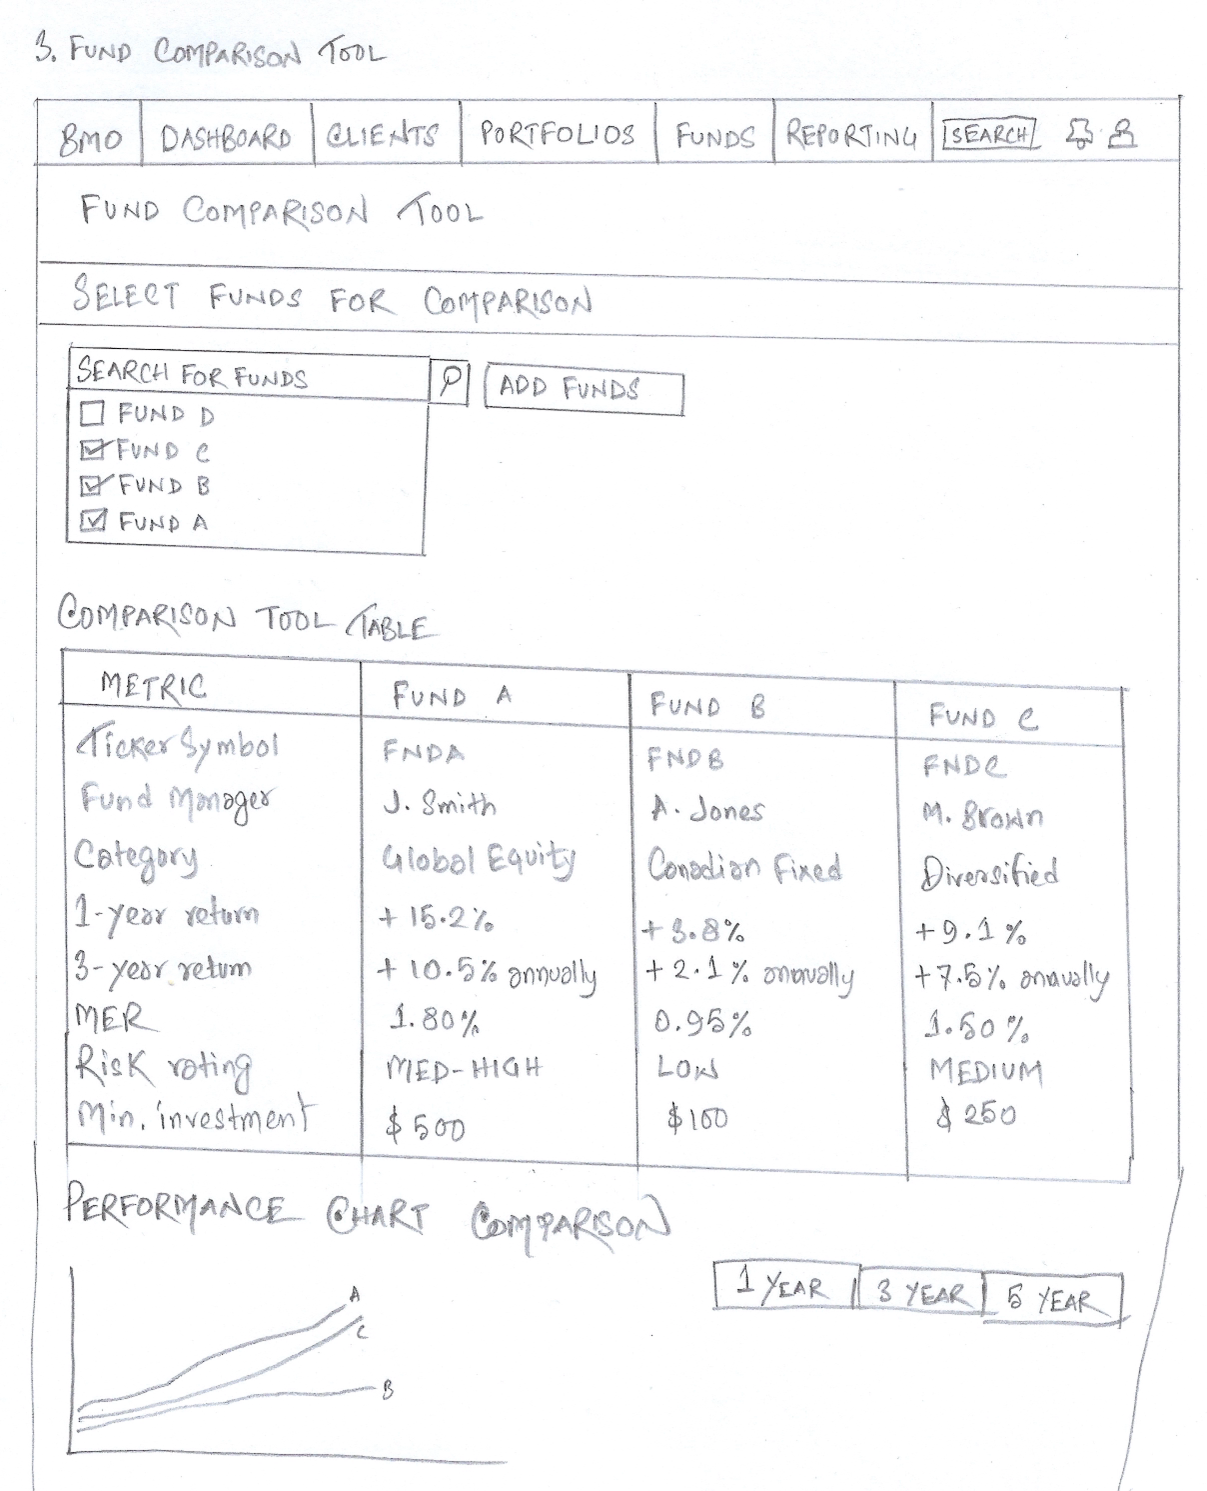 3. FUND COMPARISON TOOL
BMO DASHBOARD CLIENTS PORTFOLIOS FUNDS REPORTING SEARCH
FUND COMPARISON TOOL
SELECT FUNDS FOR COMPARISON
SEARCH FOR FUNDS ADD FUNDS
FUND D
FUND C
FUND B
FUND A
COMPARISON TOOL TABLE
METRIC FUND A FUND B FUND C
Ticker Symbol FNDA FNDB FNDC
Fund Manager J. Smith A. Jones M. Brown
Category Global Equity Canadian Fixed Diversified
1-year return +15.2% +3.8% +9.1%
3-year return +10.5% annually +2.1% annually +7.5% annually
MER 1.80% 0.95% 1.50%
Risk rating MED-HIGH LOW MEDIUM
Min. investment $500 $100 $250
PERFORMANCE CHART COMPARISON
1 YEAR 3 YEAR 5 YEAR
A
C
B